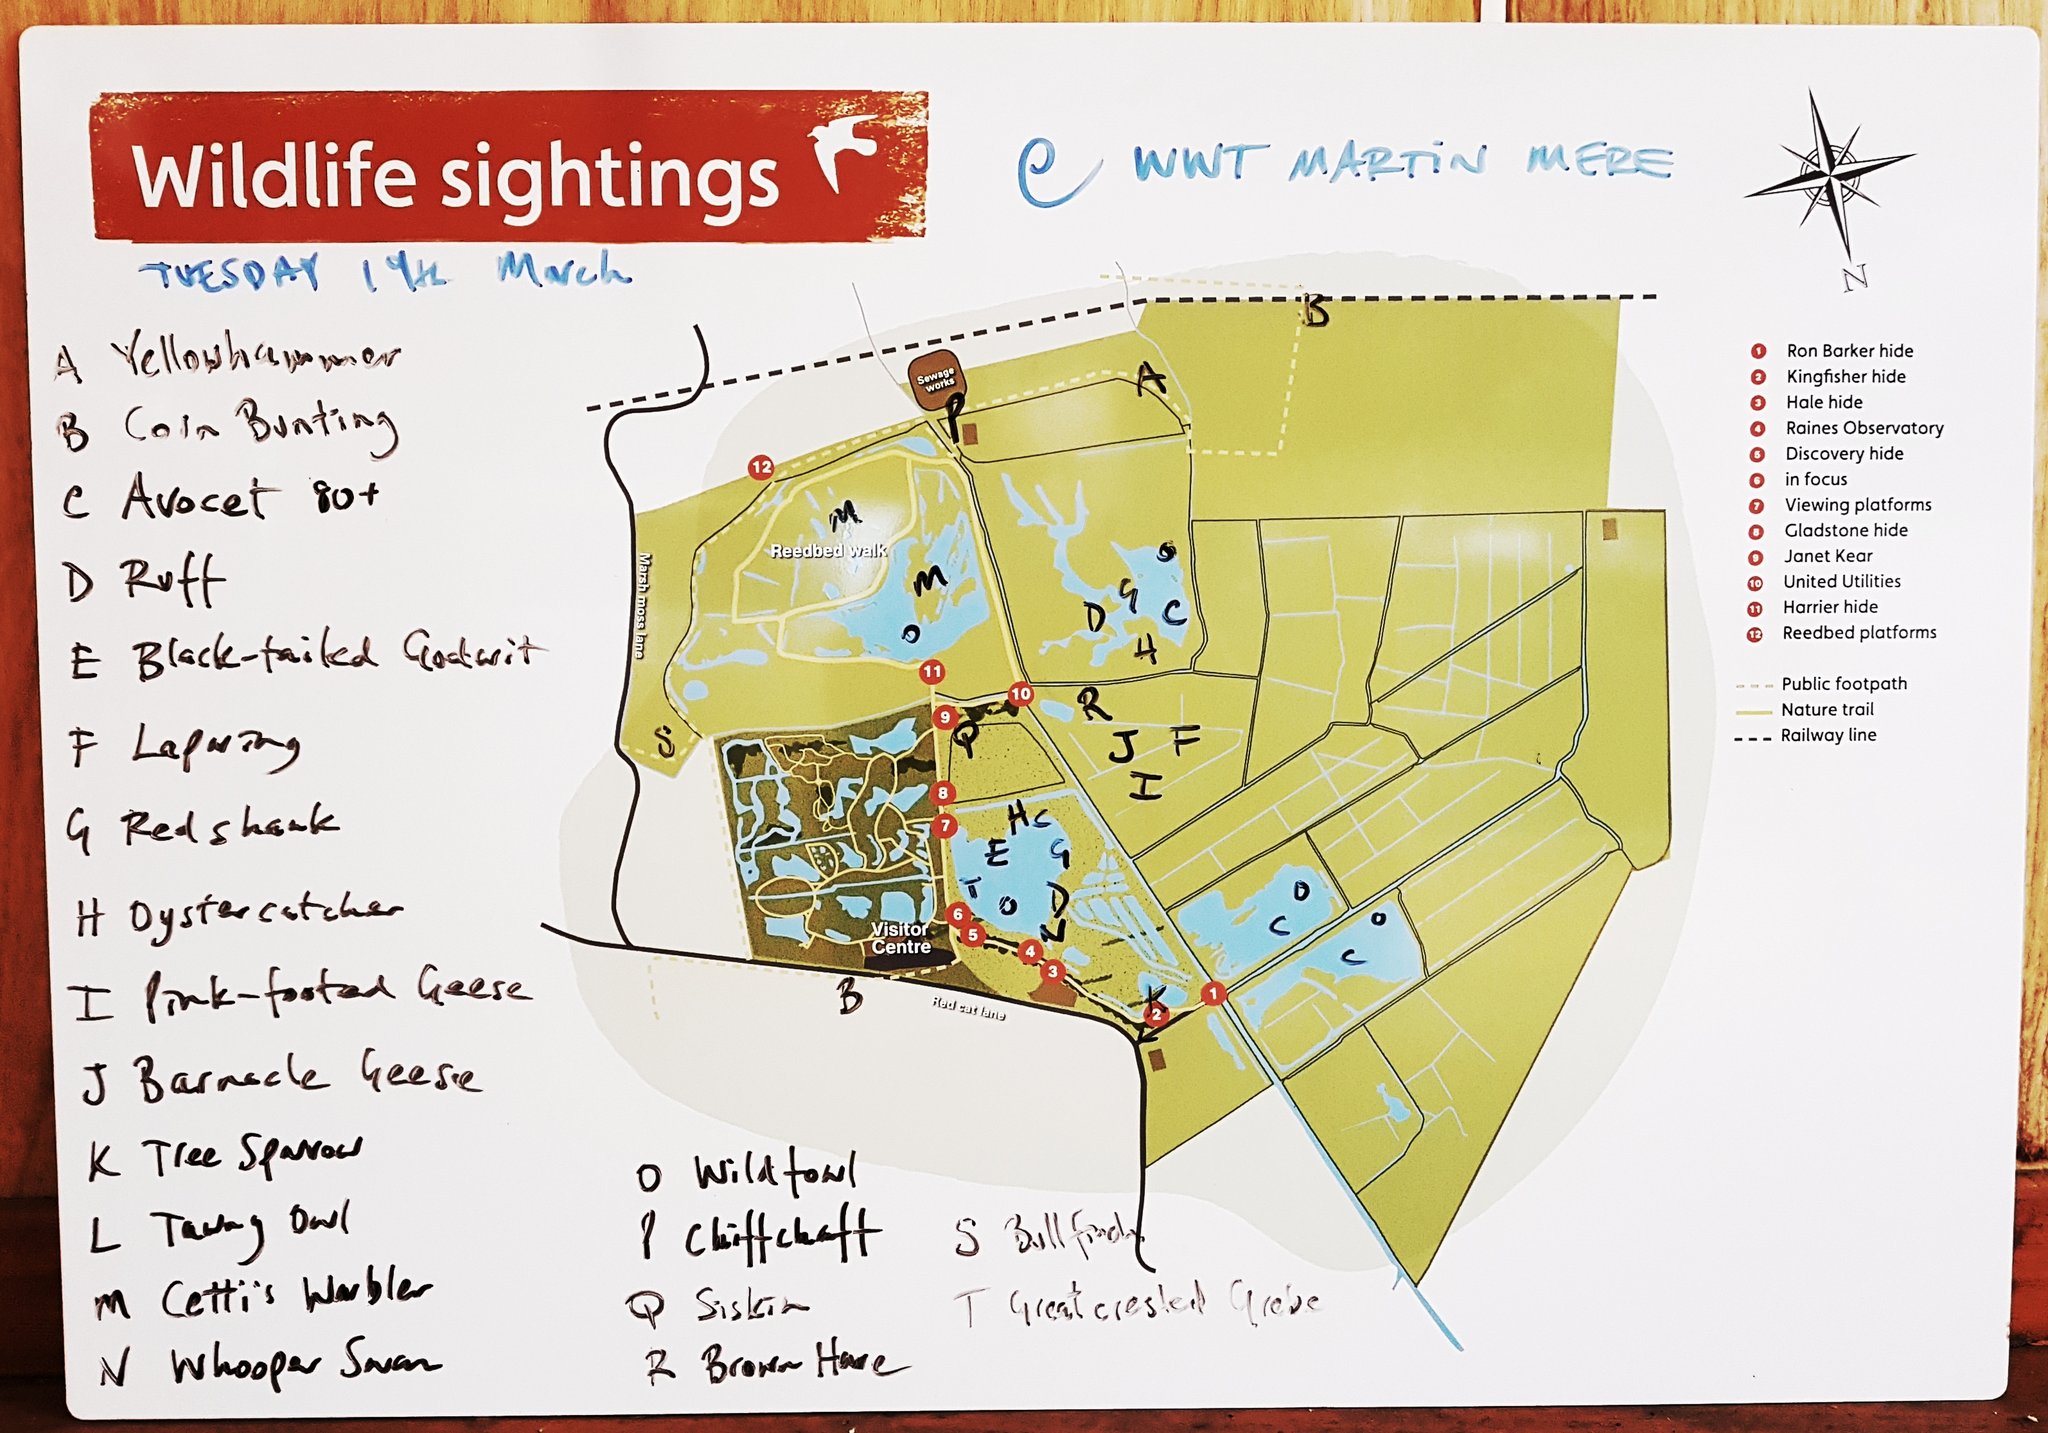 Wildlife sightings
@ WWT MARTIN MERE
TUESDAY 19th March
N
A Yellowhammer
B Corn Bunting
C Avocet 80+
D Ruff
E Black-tailed Godwit
F Lapwing
G Redshank
H Oystercatcher
I Pink-footed Geese
J Barnacle Geese
K Tree Sparrow
L Tawny Owl
M Cetti's Warbler
N Whooper Swan
O Wildfowl
P Chiffchaff
Q Siskin
R Brown Hare
S Bullfinch
T Great crested Grebe
B
A
Sewage
works
P
12
M
Reedbed walk
M
O
O
G
D
C
H
Marsh moss lane
11
10
R
9
Q
S
J
F
I
8
7
H
C
E
G
T
O
D
N
6
5
4
3
Visitor
Centre
O
C
O
C
B
Red cat lane
K
2
1
1 Ron Barker hide
2 Kingfisher hide
3 Hale hide
4 Raines Observatory
5 Discovery hide
6 in focus
7 Viewing platforms
8 Gladstone hide
9 Janet Kear
10 United Utilities
11 Harrier hide
12 Reedbed platforms
Public footpath
Nature trail
Railway line